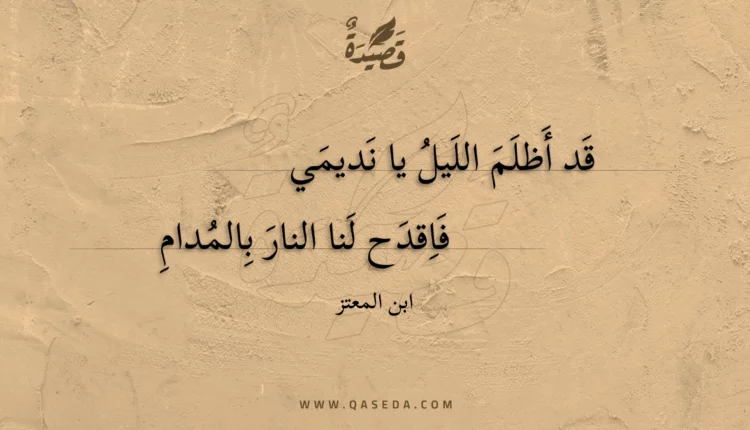 قَصِيْدَةٌ
قَد أَظلَمَ اللَيلُ يا نَديمَي
فَاِقدَح لَنا النارَ بِالمُدامِ
ابن المعتز
WWW.QASEDA.COM